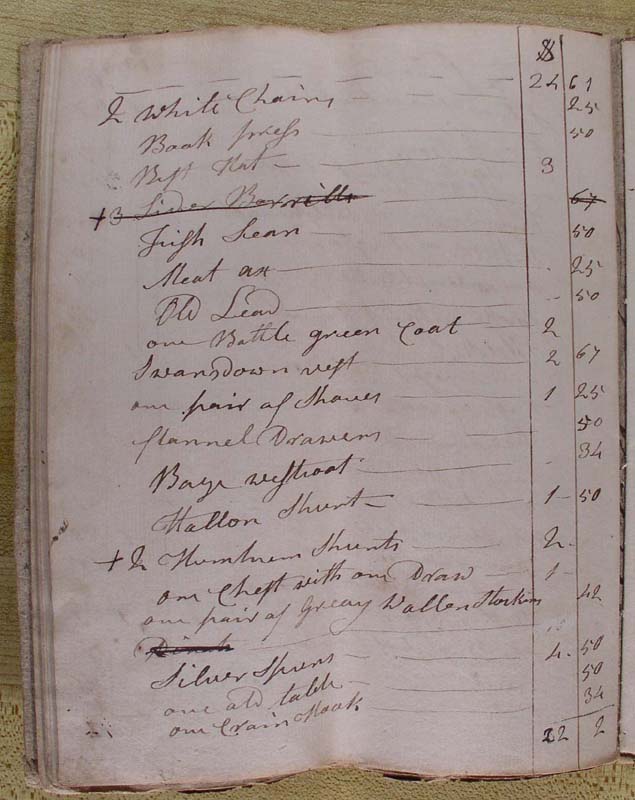 $
24 61
2 White Chairs 25
Book press 50
Best Hat 3
+3 Sider Barrills 67
Fish Sean 50
Meat ax 25
Old Lead 50
one Battle green Coat 2
Swansdown vest 2 67
one pair of Shoves 1 25
flannel Drawers 50
Baze westcoat 34
Hallon Shurt 1 50
+ 2 Humhum Shurts 2
one Chest with one Draw 1
one pair of Greay Wallen Stockins 42
Silver Spurs 4 50
one old table 50
one Crain Hook 34
22 2